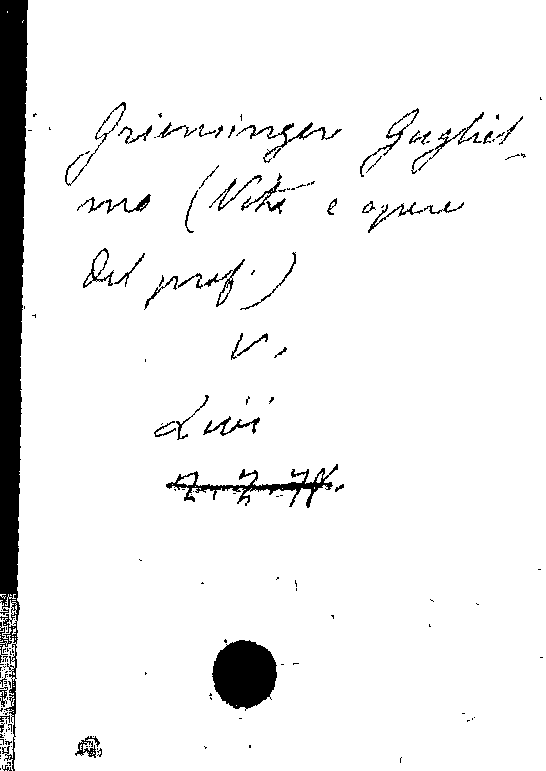 Griensinger Gugliel-
mo (Vita e opere
del prof.)
V.
Livi